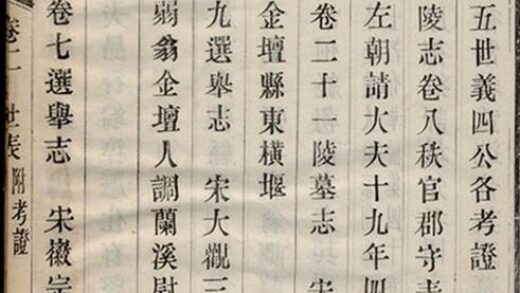 五世義四公各考證
陵志卷八秩官郡守表
左朝請大夫十九年四
卷二十一陵墓志 宋
金壇縣東橫堰
九選舉志 宋大觀三
弱翁金壇人調蘭溪尉
卷七選舉志 宋徽宗
卷二 世表 附考證